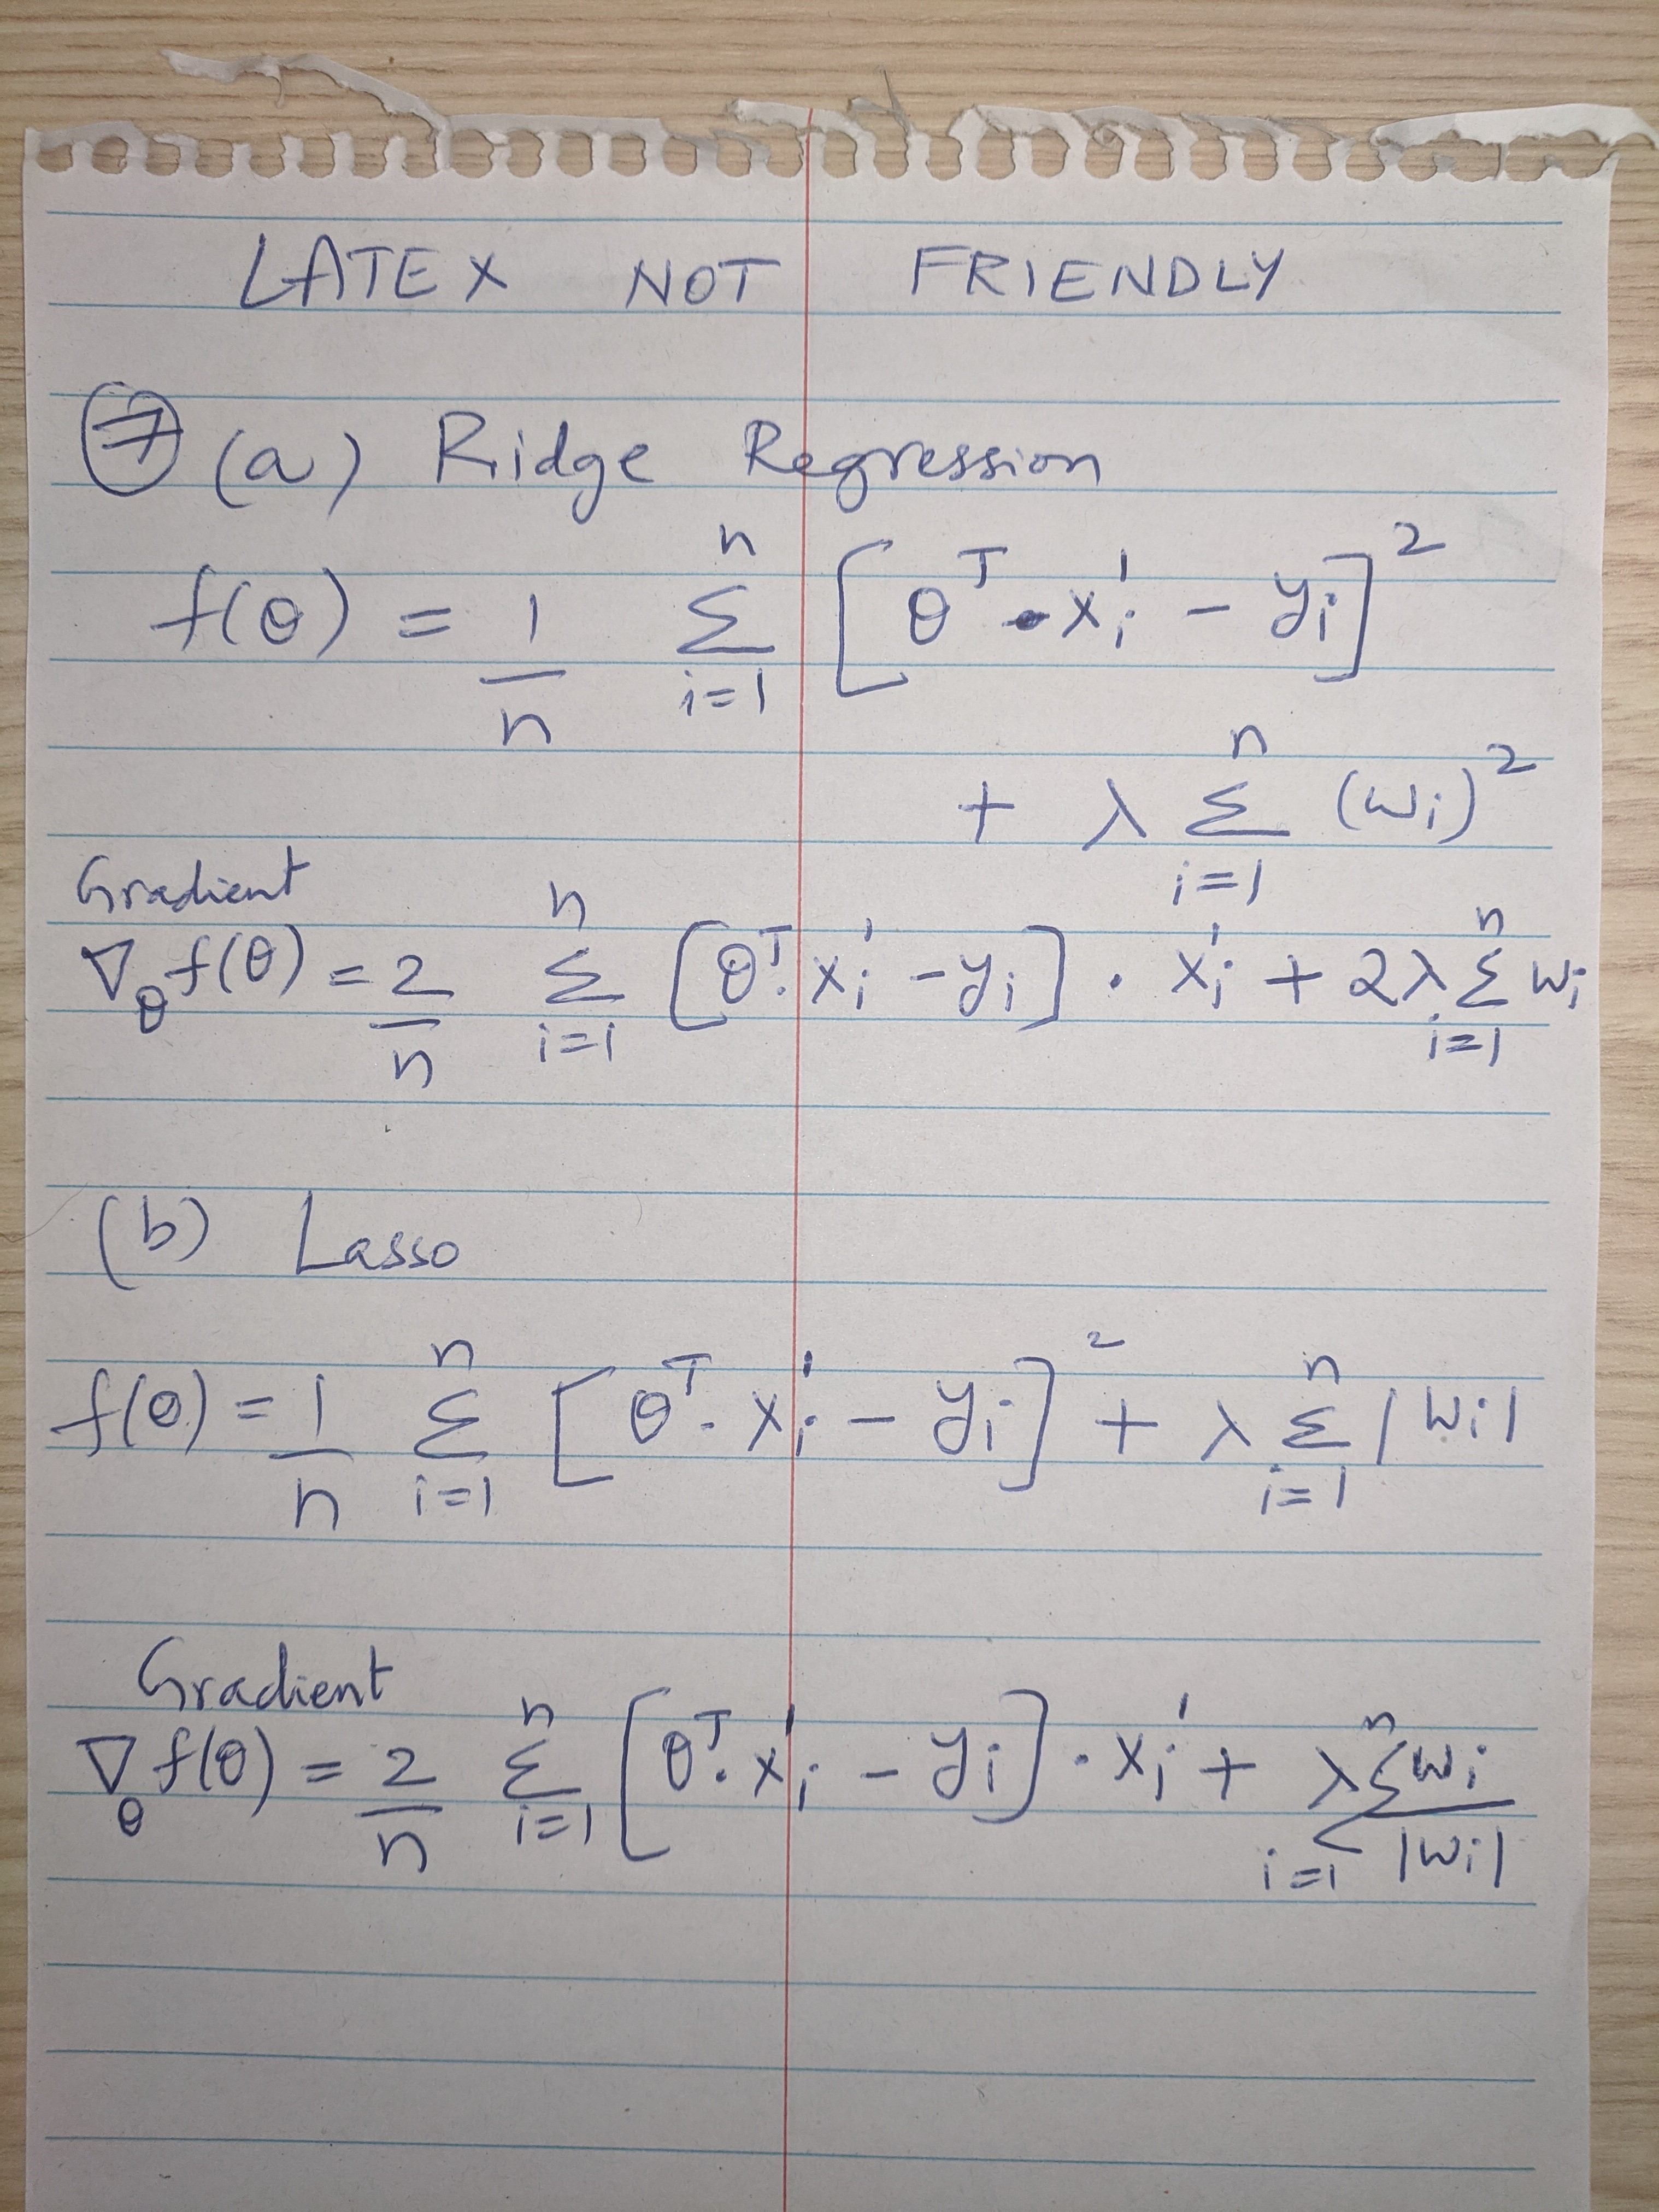 LATEX NOT FRIENDLY
⑦ (a) Ridge Regression
f(θ) = 1/n Σ_{i=1}^{n} [θ^T · x_i' - y_i]^2
+ λ Σ_{i=1}^{n} (w_i)^2
Gradient
∇_θ f(θ) = 2/n Σ_{i=1}^{n} [θ^T · x_i' - y_i] · x_i' + 2λ Σ_{i=1}^{n} w_i
(b) Lasso
f(θ) = 1/n Σ_{i=1}^{n} [θ^T · x_i' - y_i]^2 + λ Σ_{i=1}^{n} |w_i|
Gradient
∇_θ f(θ) = 2/n Σ_{i=1}^{n} [θ^T · x_i' - y_i] · x_i' + λ Σ_{i=1}^{n} w_i/|w_i|